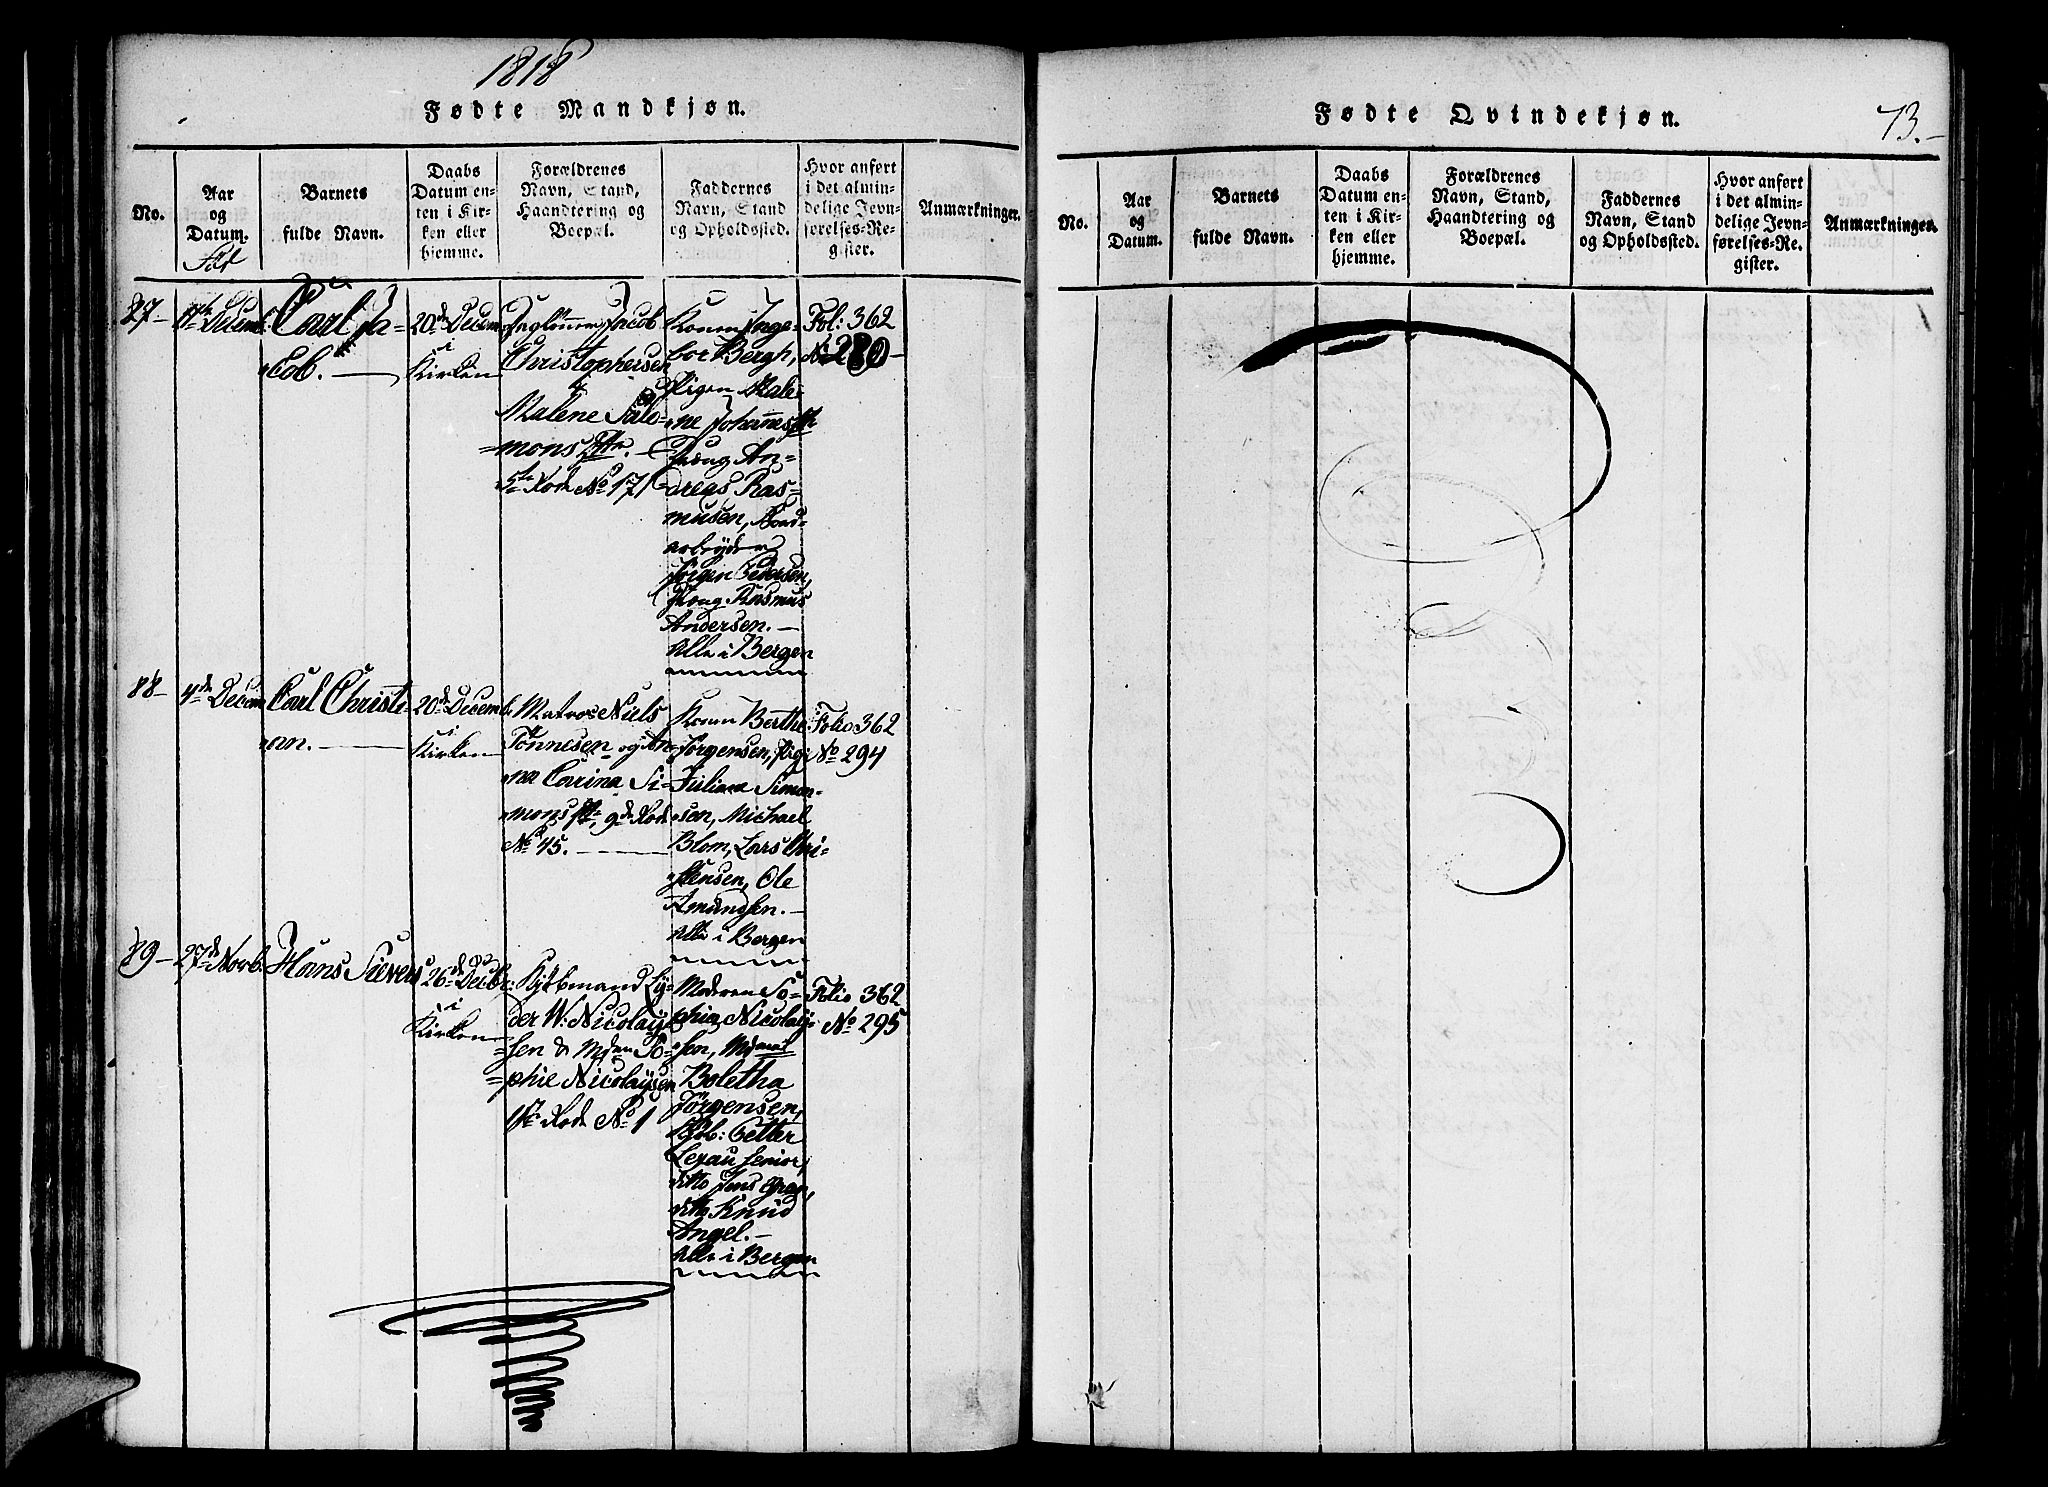 1818
Fødte Mandkjøn.
No.
Aar
og
Datum.
Barnets
fulde Navn.
Daabs
Datum en-
ten i Kir-
ken eller
hjemme.
Forældrenes
Navn, Stand,
Haandtering og
Boepæl.
Faddernes
Navn, Stand
og Opholdssted.
Hvor anført
i det almin-
delige Jevn-
førelses-Re-
gister.
Anmærkninger.
87-
Decemb:
Carl Ja-
cob.
20de Decem
i
Kirken
Jacob
Christophersen
&
Malene Salo-
mons Dtr.
5te Rode No 171
Konen Inge-
bor Bergh,
Pigen Male-
ne Johannes
An-
dreas Ras-
musen,
arbeyder
Jørgen Pedersen,
Rasmus
Andersen.
Alle i Bergen
Fol: 362
No 280
88-
4de Decem
Carl Christi-
an.
20de Decemb.
i
Kirken
Matros Niels
Tönnesen og An-
na Carina Si-
mons Dtr, 9de Rode
No 45.
Konen Berthe
Jørgensen, Pige
Juliana Simon-
sen, Michael
Blom, Lars Chri-
stensen, Ole
Amundsen.
Alle i Bergen
Folio 362
No 294
89-
27de Novb.
Hans Sievers
26de Decbr:
i
Kirken
Kjøbmand Ly-
der W: Nicolay-
sen & Mdm So-
phie Nicolaysen
1ste Rode No 1
Moderen So-
phia Nicolay-
sen,
Boletha
Jörgensen,
Kjøb: Petter
Lexau senior,
ditto Jens Gran,
ditto Knud
Angel.
Alle i Bergen
Folio 362
No 295
Fødte Qvindekjøn.
73.
No.
Aar
og
Datum.
Barnets
fulde Navn.
Daabs
Datum en-
ten i Kir-
ken eller
hjemme.
Forældrenes
Navn, Stand,
Haandtering og
Boepæl.
Faddernes
Navn, Stand
og Opholdssted.
Hvor anført
i det almin-
delige Jevn-
førelses-Re-
gister.
Anmærkninger.